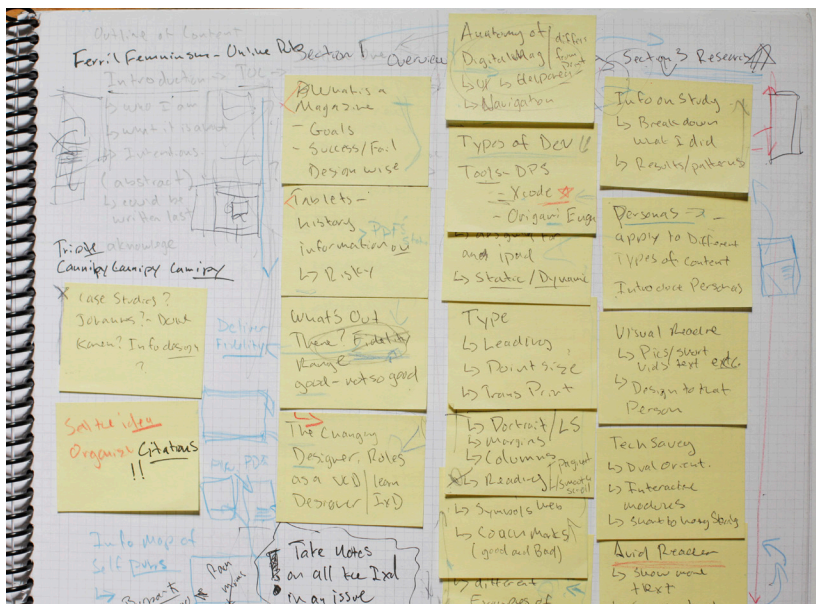 Outline of Content
Ferril Femninsm - Online Pub
Introduction
TOC
↳ who I am
↳ what it is about
↳ Intentions
(abstract)
↳ could be
written last
aknowlege
Triple
Cannipy Cannipy Cannipy
X Case Studies?
Johannes? - Done
Karen? Info design
?
Sell the idea
Organise Citations
!!
Deliver
Fidelity
Info Map of
Self
Section 1
Overview
What is a
Magazine
- Goals
- Success/Fail
Design wise
Tablets -
history
information on
↳ Risky
PDFs
What's Out
There? Fidelity
Range
good - not so good
The Changing
Designer, Roles
as a VCD/learn
Designer/IxD
Take Notes
on all the IxD
in an issue
Anatomy of
Digital Mag
differs
from
print
↳ UI
↳ Navigation
Types of Dev
Tools - DPS
- Xcode
- Origami Engin
and ipad
↳ Static/Dynamic
Type
↳ Leading
↳ Point size
↳ Trans Print
↳ Portrait/LS
↳ Margins
↳ Columns
↳ Reading
↳ Symbols web
↳ Coach Marks
(good and Bad)
↳ different
Examples of
Section 3 Research
Info on Study
↳ Breakdown
what I did
↳ Results/patterns
Personas
apply to Different
Types of content
Introduct Personas
Visual Readre
↳ Pics/short
vids text etc.
↳ Design to that
Person
Tech Savey
↳ Dual Orient.
↳ Interactive
↳ short to long
Avid Reader
↳ show more
text